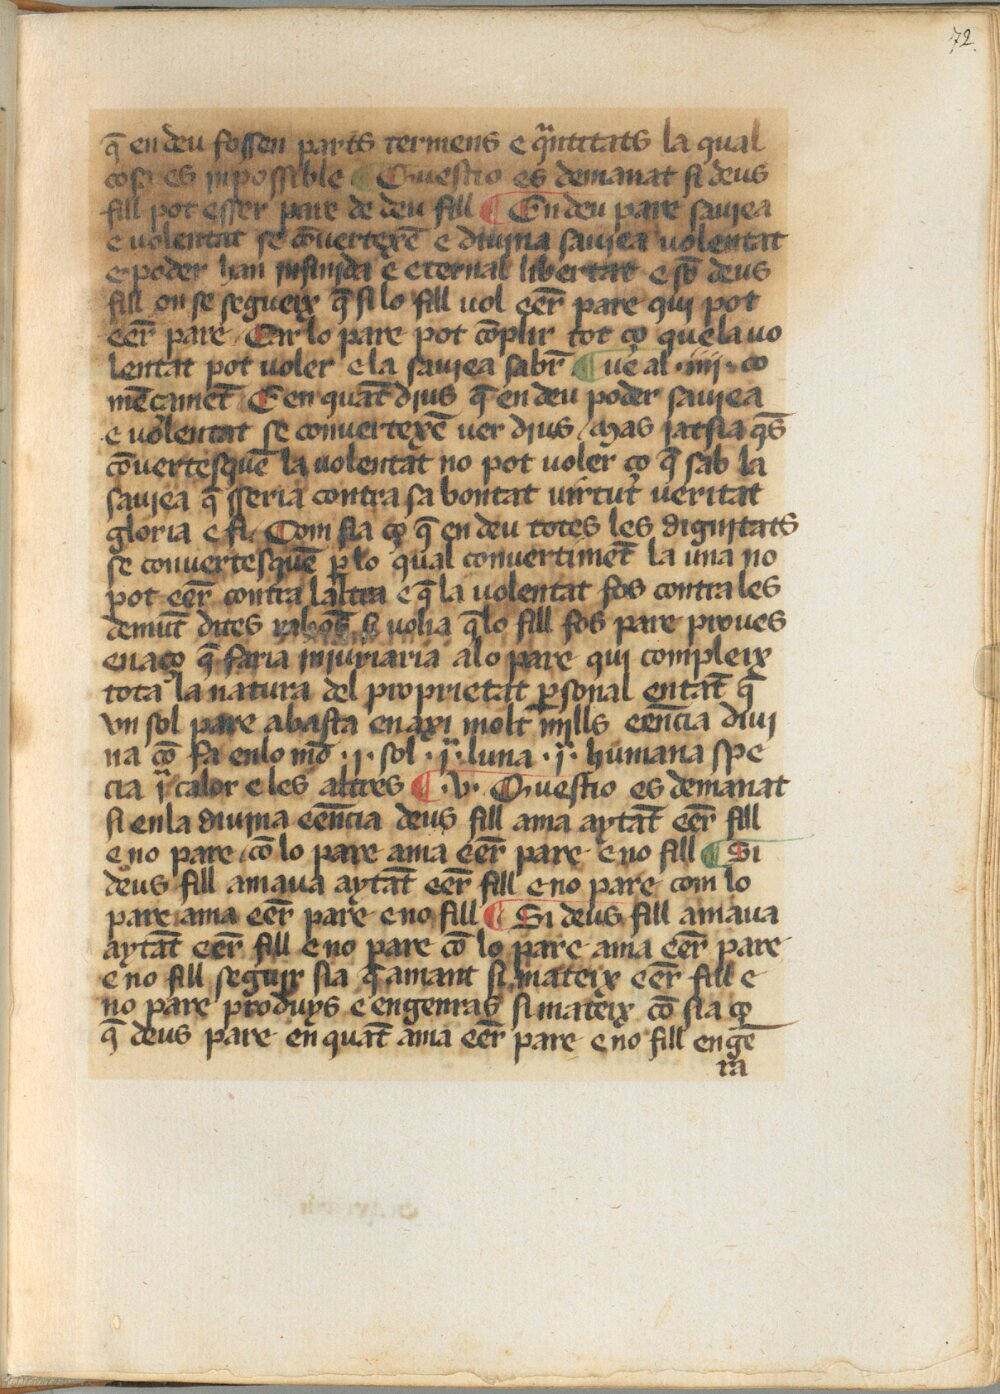 72.
q̄ en deu fossen parts termens e q̃ntitats la qual
cosa es inpossible ¶ Questio es demanat si deus
fill pot esser pare de deu fill ¶ En deu pare saviea
e volentat se cōvertexē e divina saviea volentat
e poder han infinida e eternal libertat e deus
fill on se segueix q̄ si lo fill vol eēr pare qui pot
eēr pare Car lo pare pot cōplir tot ço que la vo
lentat pot voler e la saviea sabr̄ ¶ ve al ·iiii· co
mēçamēt E en quāt dius q̄ en deu poder saviea
e volentat se convertexē ver dius mas jatsia q̄s
cōvertesquē la volentat no pot voler ço q̄ sab la
saviea q̄ sseria contra sa bontat virtut veritat
gloria e fi. Com sia ço q̄ en deu totes les dignitats
se convertesquē p̱ lo qual convertimēt la una no
pot eēr contra laltra e q̄ la volentat fos contra les
demūt dites si volia q̄ lo fill fos pare proves
en aço q̄ faria injuriaria a lo pare qui compleix
tota la natura del proprietat p̱sonal en tāt q̄
vn sol pare abasta en axi molt mills eēncia divi
na cō fa en lo mō ·i· sol ·iª· luna ·iª· humana spe
cia iª calor e les altres ¶ ·v· Questio es demanat
si en la divina eēncia deus fill ama aytāt eēr fill
e no pare cō lo pare ama eēr pare e no fill ¶ Si
deus fill amava aytāt eēr fill e no pare com lo
pare ama eēr pare e no fill ¶ Si deus fill amava
aytāt eēr fill e no pare cō lo pare ama eēr pare
e no fill seguir sia q̄ amant si mateix eēr fill e
no pare produys e engenras si mateix cō sia ço
q̄ deus pare en quāt ama eēr pare e no fill enge
ra